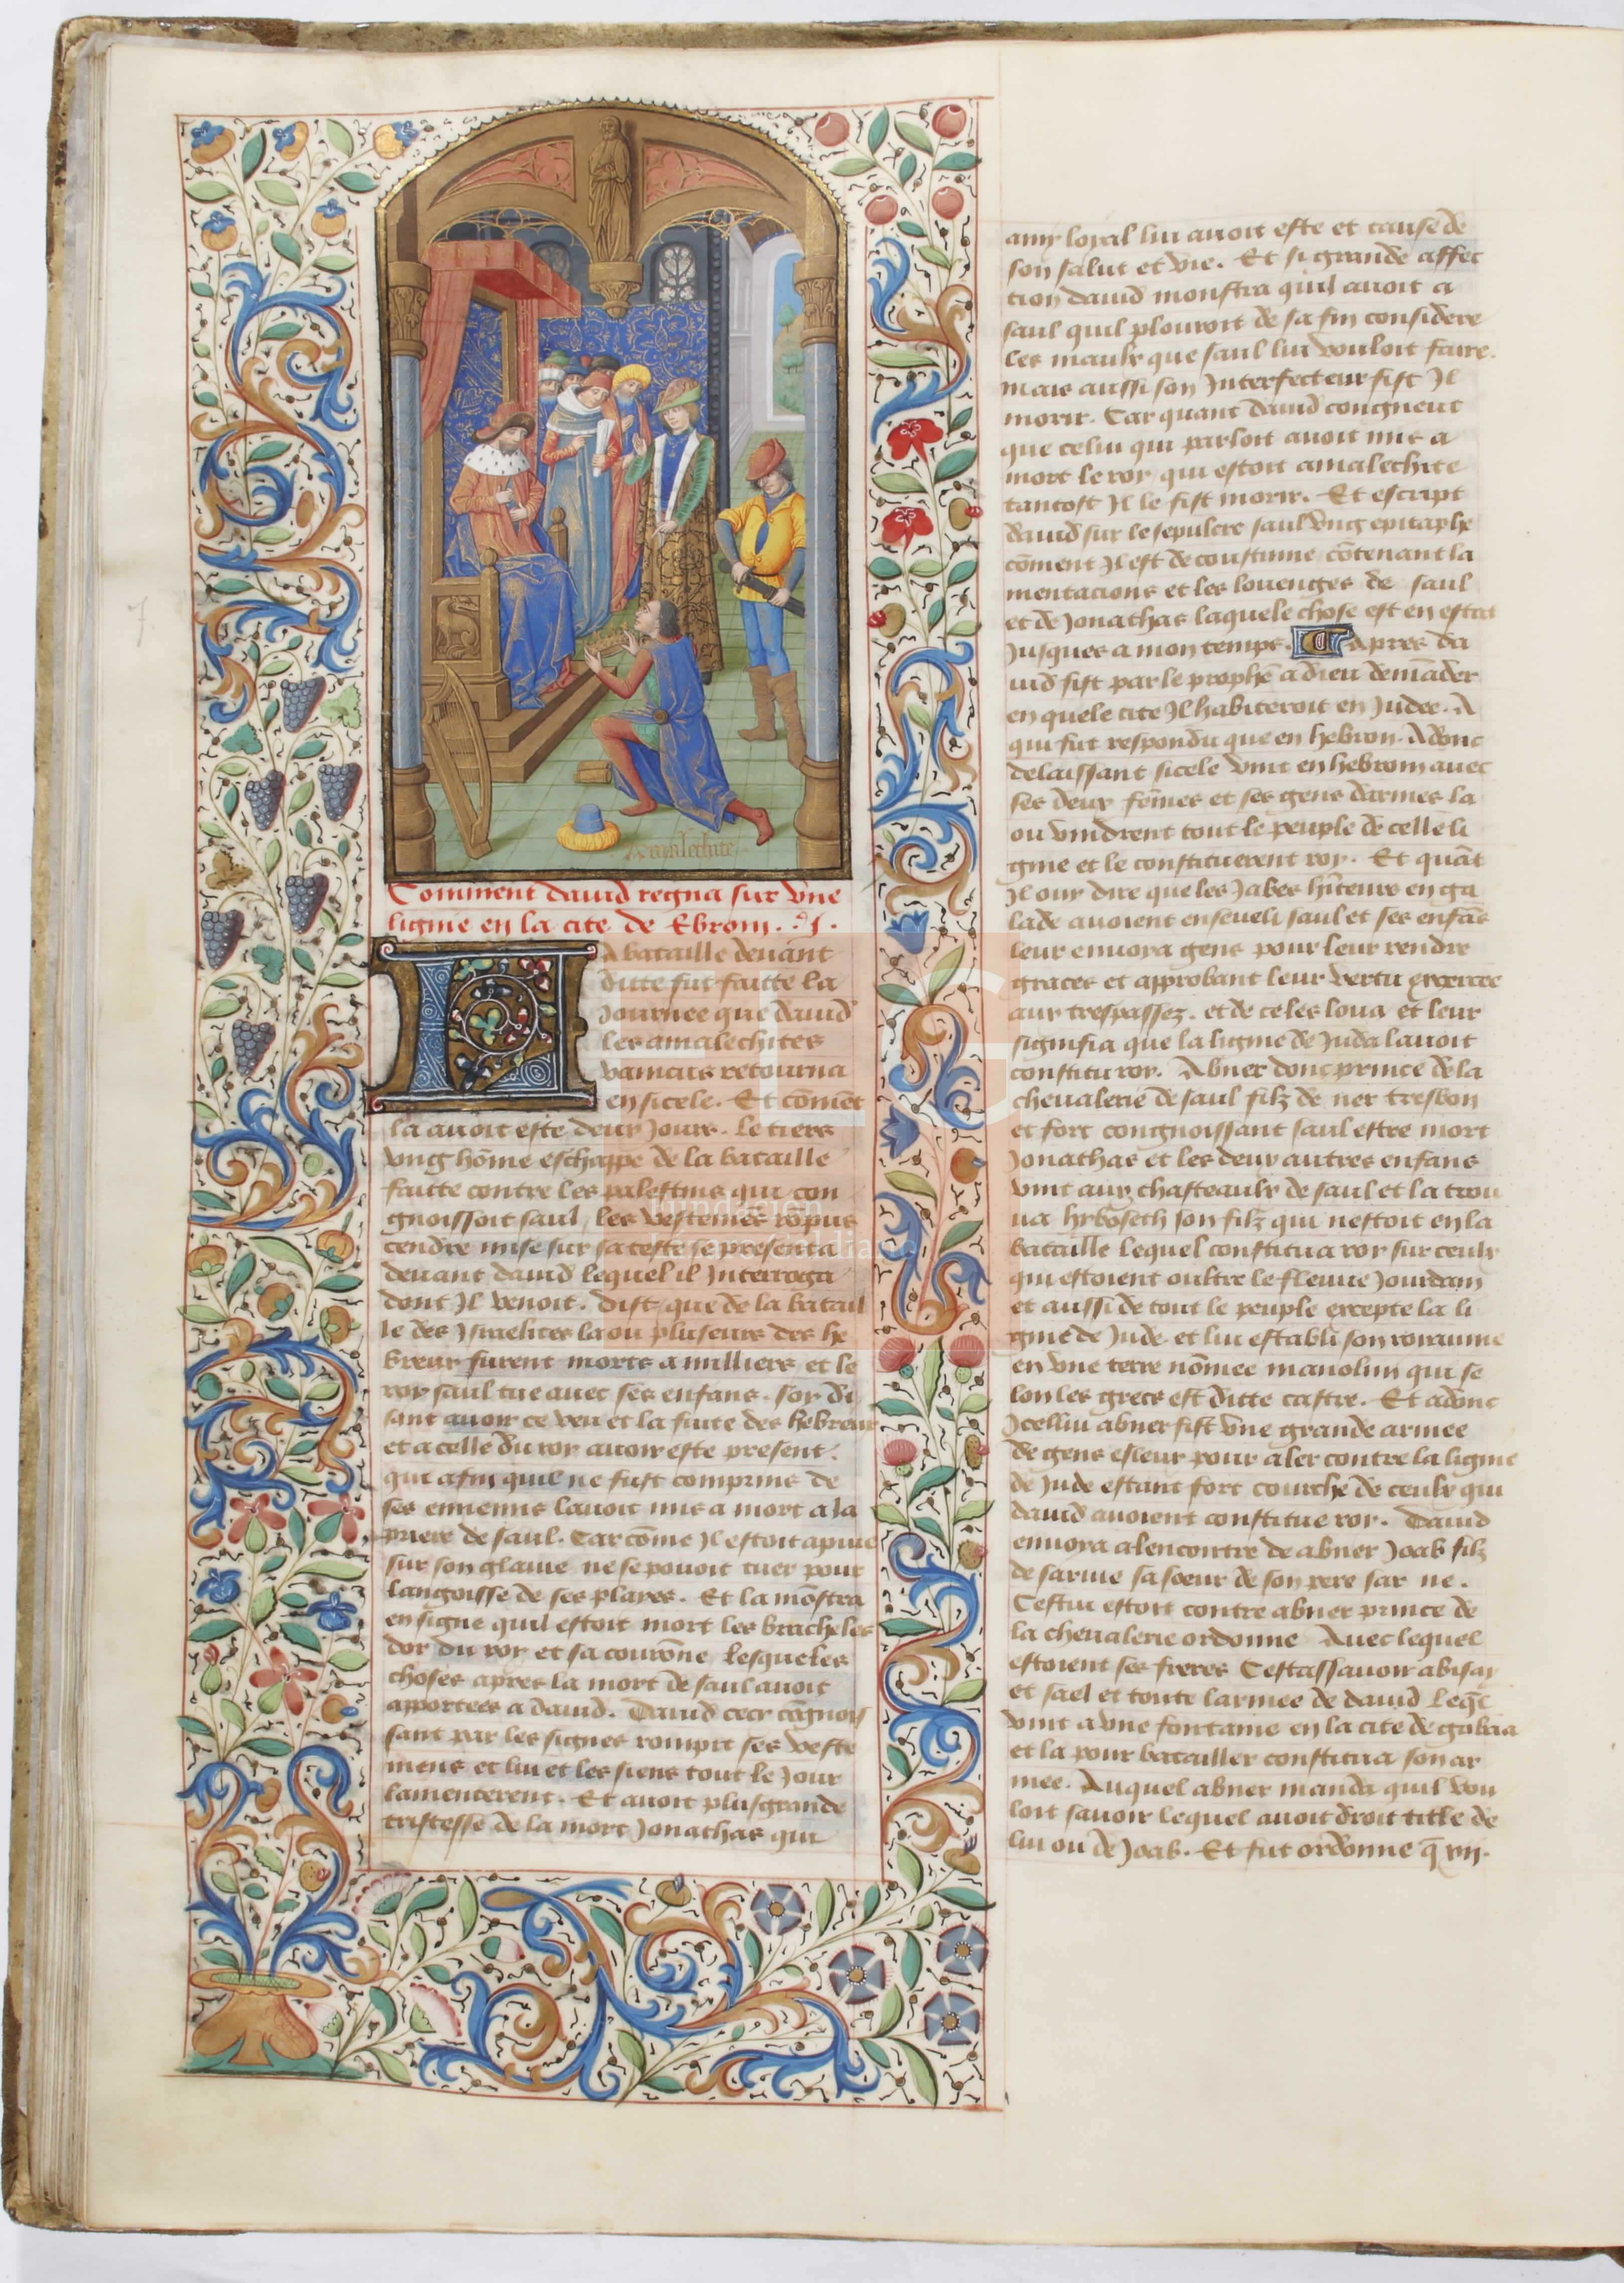 Amalechite
Comment dauid regna sur vne
lignie en la cite de Ebrom. .j.
La bataille deuant
ditte fut faitte la
journee que dauid
les amalechites
vaincus retourna
en sicele. Et cōmēt
la auoit este deux jours. Le tiers
vng hōme eschappe de la bataille
faitte contre les palestins qui con
gnoissoit saul, les vestemēs ropus
cendre mise sur sa teste se presenta
deuant dauid lequel il jnterroga
dont jl venoit. Dist que de la batail
le des jsraelites la ou pluseurs des he
breux furent morts a milliers et le
roy saul tue auec ses enfans. soy di
sant auoir ce veu et la fuite des hebreux
et a celle du roy auoir este present.
qui afin quil ne fust comprins de
ses ennemis lauoit mis a mort a la
priere de saul. Car cōme jl estoit apuie
sur son glaiue ne se pouoit tuer pour
langoisse de ses playes. Et la mōstra
en signe quil estoit mort les bracheles
dor du roy et sa courōne lesqueles
choses apres la mort de saul auoit
apportees a dauid. Dauid cecy cōgnois
sant par les signes rompit ses veste
mens et lui et les siens tout le jour
lamenterent. Et auoit plus grande
tristesse de la mort jonathas qui
amy loyal lui auoit este et cause de
son salut et vie. Et si grande affec
tion dauid monstra quil auoit a
saul quil plouroit de sa fin considere
les maulx que saul lui vouloit faire.
mais aussi son jnterfecteur fist jl
morir. Car quant dauid congneut
que celui qui parloit auoit mis a
mort le roy qui estoit amalechite
tantost jl le fist morir. Et escript
dauid sur le sepulcre saul vng epitaphe
cōment jl est de coustume cōtenant la
mentacions et les louenges de saul
et de jonathas laquele chose est en estat
jusques a mon temps. Apres da
uid fist par le prophē a dieu demāder
en quele cite jl habiteroit en judee. A
qui fut respondu que en hebron. Adonc
delaissant sicele vint en hebrom auec
ses deux fēmes et ses gens darmes la
ou vindrent tout le peuple de celle li
gnie et le constituerent roy. Et quāt
jl ouy dire que les jabes hīteurs en ga
lade auoient enseueli saul et ses enfās
leur enuoya gens pour leur rendre
graces et approbant leur vertu exercee
aux trespassez. et de ce les loua et leur
signifia que la lignie de juda lauoit
constitu roy. Abner donc prince de la
cheualerie de saul filz de ner tresbon
et fort congnoissant saul estre mort
jonathas et les deux autres enfans
vint aux chasteaulx de saul et la trou
ua hyboseth son filz qui nestoit en la
bataille lequel constitua roy sur ceulx
qui estoient oultre le fleuue jourdain
et aussi de tout le peuple excepte la li
gnie de jude et lui establi son roiaume
en vne terre nōmee manolim qui se
lon les grecs est ditte castre. Et adonc
jcellui abner fist vne grande armee
de gens esleux pour aler contre la lignie
de jude estant fort courche de ceulx qui
dauid auoient constitue roy. Dauid
enuoya alencontre de abner joab filz
de saruie sa soeur de son pere sar ne.
Cestui estoit contre abner prince de
la cheualerie ordonne Auec lequel
estoient ses freres Cestassauoir abisay
et sael et toute larmee de dauid Leq̄l
vint a vne fontaine en la cite de gabaa
et la pour batailler constitua son ar
mee. Auquel abner manda quil vou
loit sauoir lequel auoit droit title de
lui ou de joab. Et fut ordonne q̄ xij.